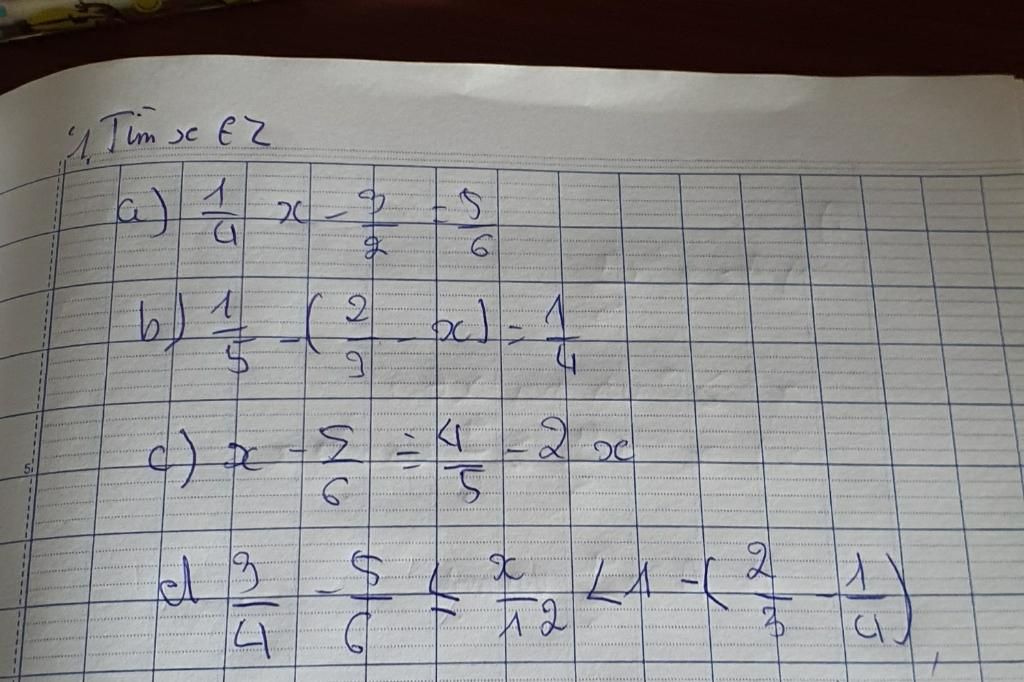 1, Tìm x ∈ Z
a) 1/4 x - 3/2 = 5/6
b) 1/5 - (2/3 - x) = 1/4
c) x - 5/6 = 4/5 - 2x
d 3/4 - 5/6 ≤ x/12 < 1 - (2/3 - 1/4)
5